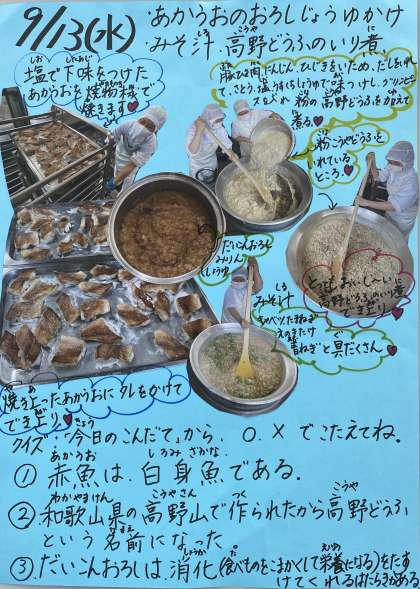 9/13(水)
・あかうおのおろしじょうゆかけ
・みそ汁・高野どうふのいり煮
しる こうや に
しお したあじ
塩で下味をつけた
あかうおを焼物機で
焼きます♥
豚ひき肉、にんじん、ひじきをいため、だしをいれ
て、さとう、塩、うすくちしょうゆで味つけし、グリンピー
スを入れ 粉の高野どうふを加えて
煮る♥
粉こうやどうふを
いれている
ところ♥
だいこんおろし
みりん
しょうゆ
とってもおいし〜い
高野どうふのいり煮
でき上り♥
しる
みそ汁
キャベツ、たまねぎ
えのきたけ
青ねぎと具だくさん♥
や あ
焼き上ったあかうおにタレをかけて
でき上り♥
きょう
クイズ:「今日のこんだて」から、〇、×でこたえてね。
あかうお しろみざかな
① 赤魚は、白身魚である。
わかやまけん こうやさん つく こうや
② 和歌山県の高野山で作られたから高野どうふ
なまえ
という名前になった。
しょうか た えいよう
③ だいこんおろしは、消化(食べものをこまかくして栄養になる)をたす
けてくれるはたらきがある